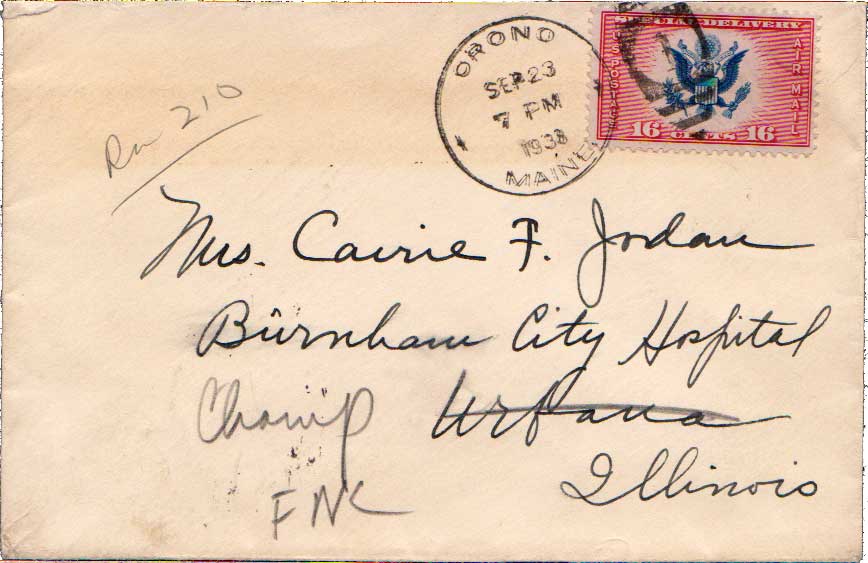 ORONO
SEP 23
7 PM
1938
MAINE
SPECIAL DELIVERY
U.S. POSTAGE
AIR MAIL
16 CENTS 16
Rm 210
Mrs. Carrie F. Jordan
Burnham City Hospital
Champ Urbana
Illinois